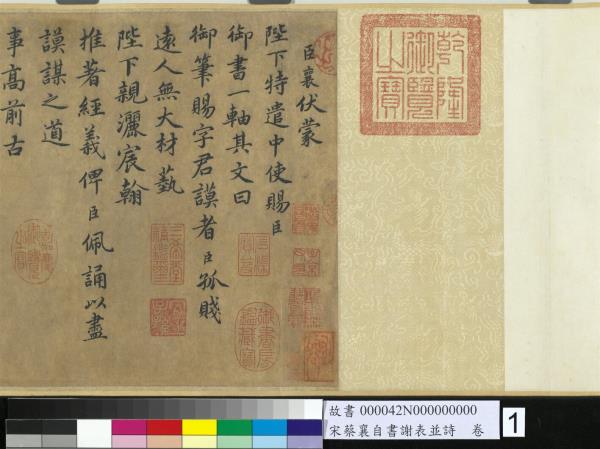 臣襄伏蒙
陛下特遣中使賜臣
御書一軸其文曰
御筆賜字君謨者臣孤賤
遠人無大材藝
陛下親灑宸翰
推著經義俾臣佩誦以盡
謨謀之道
事高前古
乾隆
御覽
之寶
故書 000042N000000000
宋蔡襄自書謝表並詩 卷
1